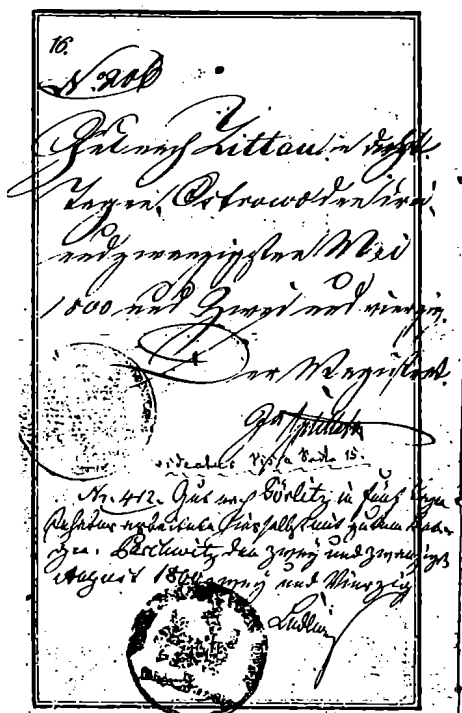 16.
N. 206
Gut nach Zittau in acht
Tagen. Ostrowo den drei
und zwanzigsten Mai
1800 und Zwei und vierzig.
Der Magistrat.
Visa Seite 15.
Nr. 412. Gut nach Görlitz in fünf Tagen
arbeitete hierselbst
den zwey und zwanzigst
August 1800 zwey und Vierzig